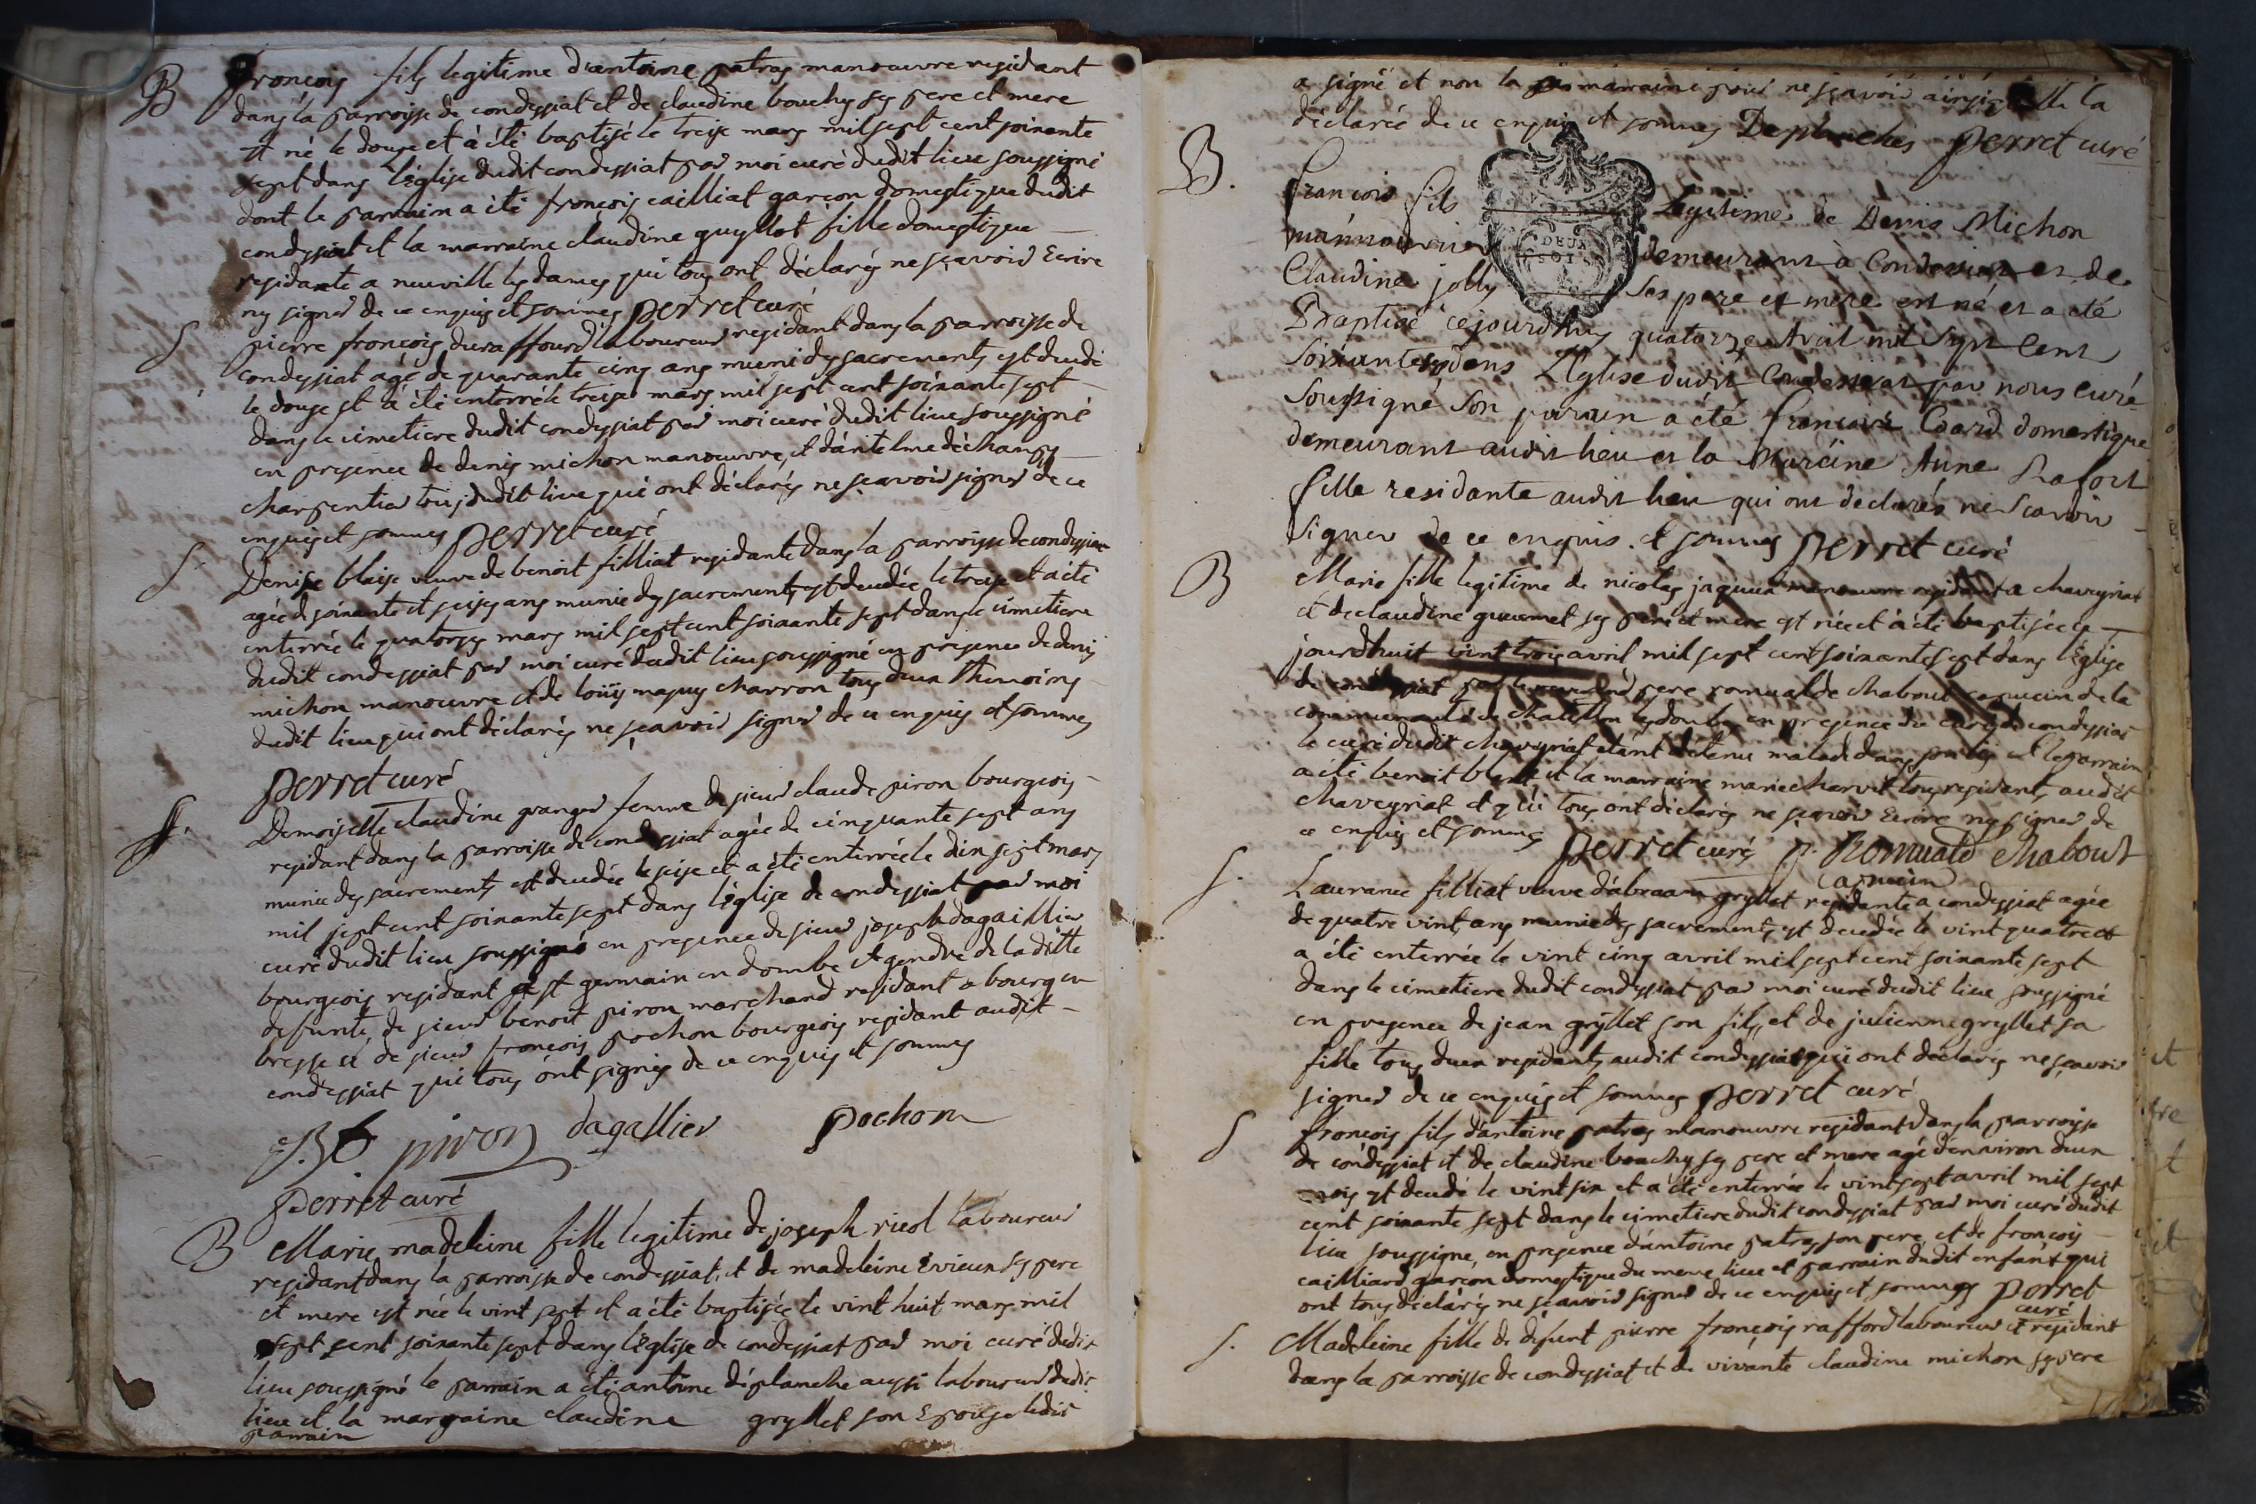 B françois fils legitime d'antoine patras manoeuvre residant
dans la parroisse de condessiat et de claudine bouchy ses pere et mere
est né le douze et à été baptisé le treise mars mil sept cent soixante
sept dans l'église dudit condessiat par moi curé dudit lieu soussigné
dont le parrain a été françois cailliat garçon domestique dudit
condessiat et la marraine claudine guyllot fille domestique
residante a neuville les dames qui tous ont déclarés ne sçavoir Ecrire
ny signer de ce enquis et sommés perret curé
S pierre françois duraffourd laboureur residant dans la parroisse de
condessiat agé de quarante cinq ans muni des sacrements est decedé
le douze et à été enterré le treise mars mil sept cent soixante sept
dans le cimetiere dudit condessiat par moi curé dudit lieu soussigné
en presence de denis michon manoeuvre, et d'antelme déchangy
charpentier tous dudit lieu qui ont déclarés ne sçavoir signer de ce
enquis et sommés perret curé
S. Denise blaise veuve de benoit filliat residante dans la parroisse de condessiat
agée de soixante et seise ans munie des sacrements est decedée le treise et a été
enterrée le quatorze mars mil sept cent soixante sept dans le cimetiere
dudit condessiat par moi curé dudit lieu soussigné en presence de denis
michon manoeuvre et de loüis mapuy charron tous deux themoins
dudit lieu qui ont déclarés ne sçavoir signer de ce enquis et sommés
perret curé
S. Demoiselle claudine granger femme de sieur claude piron bourgeois
residant dans la parroisse de condessiat agée de cinquante sept ans
munie des sacrements est decedée le seise et a été enterrée le dix sept mars
mil sept cent soixante sept dans l'église de condessiat par moi
curé dudit lieu soussigné en presence de sieur joseph dagaillier
bourgeois residant a st germain en dombe et gendre de la ditte
defunte, de sieur benoit piron marchand residant a bourg en
bresse et de sieur françois pochon bourgeois residant audit
condessiat qui tous ont signés de ce enquis et sommés
piron dagallier pochon
perret curé
B Marie madeleine fille legitime de joseph riceol laboureur
residant dans la parroisse de condessiat, et de madeleine Evieux ses pere
et mere est née le vint sept et a été baptisée le vint huit mars mil
sept cent soixante sept dans l'église de condessiat par moi curé dudit
lieu soussigné le parrain a été antoine déplanche aussi laboureur dudit
lieu et la marraine claudine gryllet son Epouse ledit
parrain
a signé et non la marraine pour ne sçavoir ainsi qu'elle la
déclarée de ce enquis et sommés Desplanches perret curé
B. françois fils Legitime de Denis Michon
mannoeuvrier demeurant à Condessiat et de
Claudine jolly Ses pere et mere est né et a été
Baptisé cejourdhuy quatorze Avril mil Sept Cent
Soixantesept dans L'Eglise dudit Condessiat par nous Curé
Soussigné Son parain a été françois Coard domestique
demeurant audit lieu et la Maraine Anne Rafort
fille residante audit lieu qui ont declarés ne Scavoir
Signer de ce enquis. et sommés perret curé
B Marie fille legitime de nicolas jaquux manoeuvre residant a chaveyriat
et de claudine gueumet ses pere et mere est née et à été baptisée ce
jourdhuit vint trois avril mil sept cent soixante sept dans l'église
de condessiat par le reverend pere romualde chabout capucin de la
communauté de chatillon les dombe en presence du curé de condessiat
le curé dudit chaveyriat étant détenu malade dans son lit et le parrain
a été benoit blanc et la marraine marie charvet tous residants audit
chaveyriat et qui tous ont déclarés ne sçavoir Ecrire ny signer de
ce enquis et sommés perret curé p. Romuald Chabout
capucin
S. Laurance filliat veuve d'abraam gryllet residante a condessiat agée
de quatre vint ans munie des sacrements est decedée le vint quatre et
a été enterrée le vint cinq avril mil sept cent soixante sept
dans le cimetiere dudit condessiat par moi curé dudit lieu soussigné
en presence de jean gryllet son fils, et de julienne gryllet sa
fille tous deux residants audit condessiat qui ont déclarés ne sçavoir
signer de ce enquis et sommés perret curé
S françois fils d'antoine patras manoeuvre residant dans la parroisse
de condessiat et de claudine bouchy ses pere et mere agé d'environ d'un
mois est decedé le vint six et a été enterré le vint sept avril mil sept
cent soixante sept dans le cimetiere dudit condessiat par moi curé dudit
lieu soussigné, en presence d'antoine patras son pere, et de françois
cailliard garçon domestique du meme lieu et parrain dudit enfant qui
ont tous déclarés ne sçavoir signer de ce enquis et sommés perret
curé
S. Madeleine fille de defunt pierre françois rafford laboureur et residant
dans la parroisse de condessiat et de vivante claudine michon ses pere
DEUX
SOLS